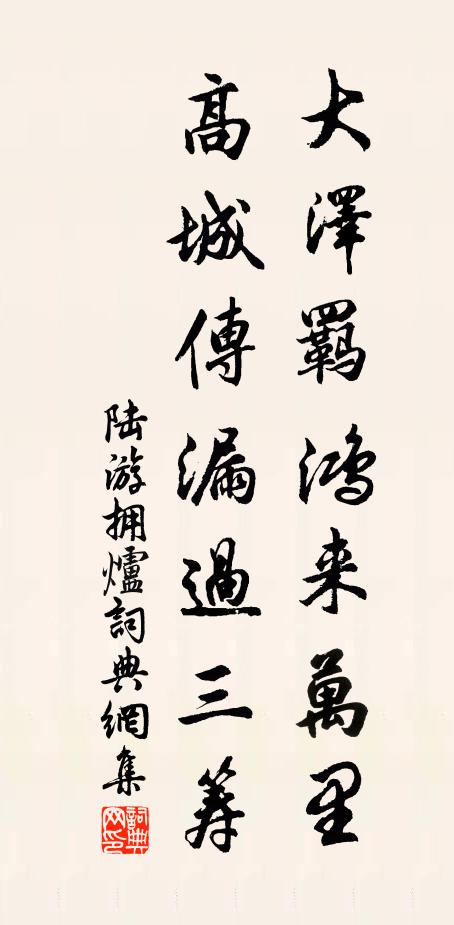 大澤羈鴻来萬里
高城傳漏過三筹
陆游拥爐詞典網集
詞典网印